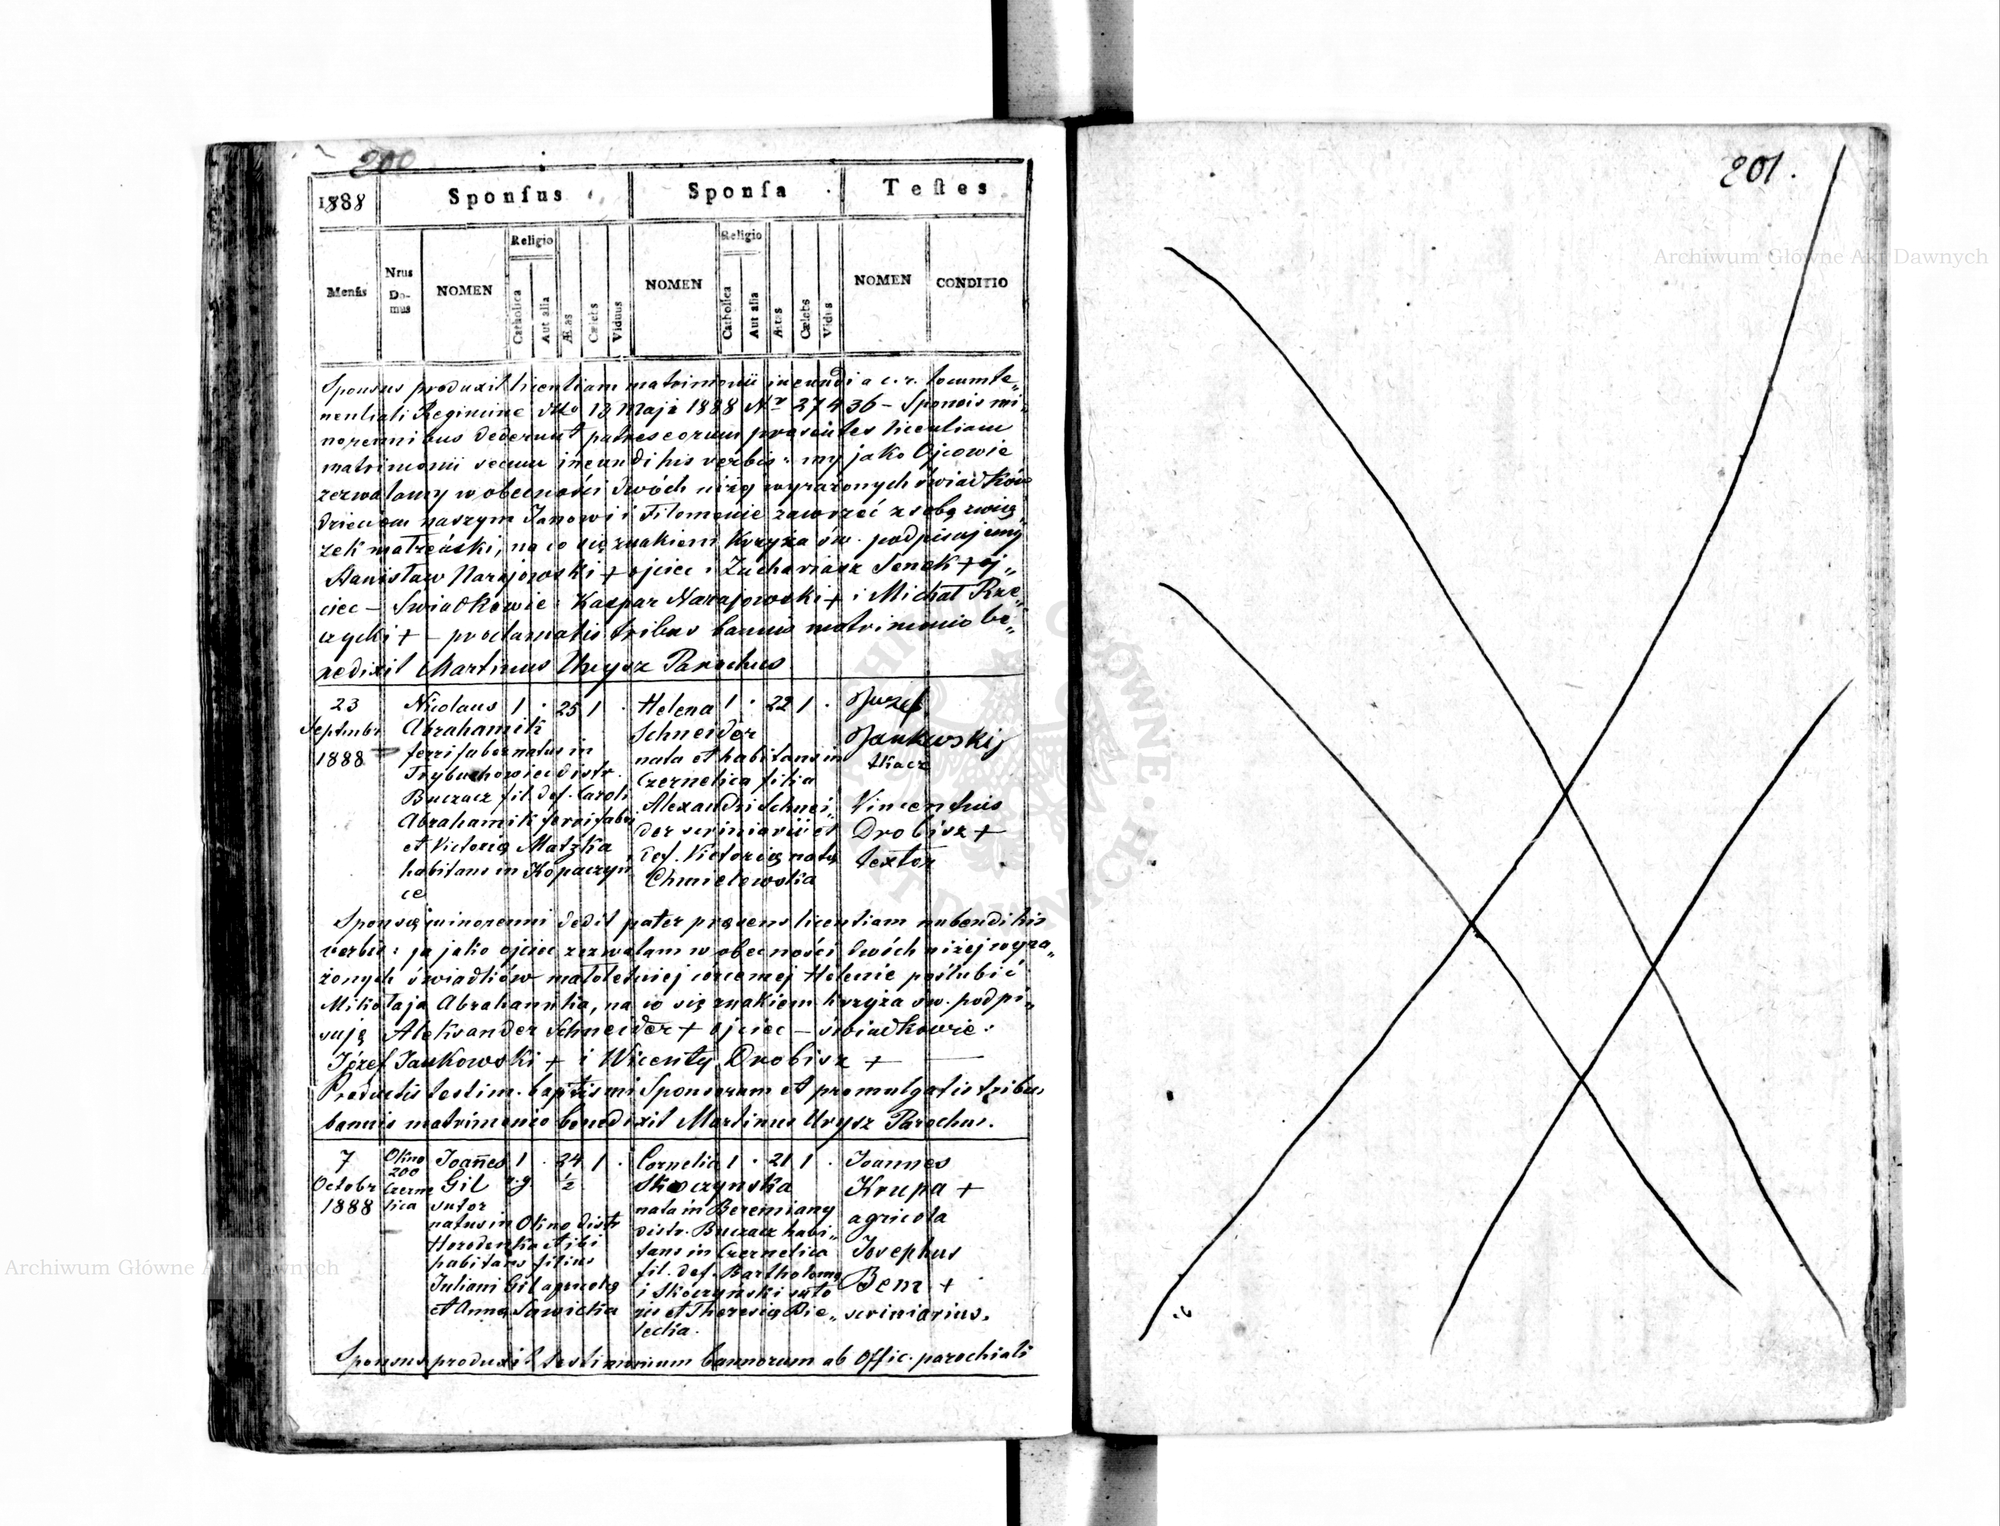 200
1888
Sponsus
Sponsa
Testes
Mensis
Nrus Domus
NOMEN
Religio
Catholica
Aut alia
Ætas
Cælebs
Viduus
NOMEN
Religio
Catholica
Aut alia
Ætas
Cælebs
Vidua
NOMEN
CONDITIO
Sponsus produxit licentiam matrimonii ineundi a c. r. locumte„
nentiali Regimine dtto 18 Maji 1888 Nr 27436 – Sponsis mi„
norennibus dederunt patres eorum præsentes licentiam
matrimonii secum ineundi his verbis: my jako Ojcowie
zezwalamy w obecności dwóch niżej wyrażonych świadków
dzieciom naszym Janowi i Filomenie zawrzéć z sobą zwią„
zek małżeński, na co się znakiem krzyża św. podpisujemy
Stanisław Narajowski + ojciec i Zachariasz Senek + oj„
ciec – Swiadkowie: Kasper Narajowski + i Michał Rze„
czycki + – proclamatis tribus bannis matrimonio be„
nedixit Martinus Urysz Parochus
23
Septembr
1888
Nicolaus 1 · 25 1 ·
Abrahamik
ferri faber natus in
Trybuchowiec distr.
Buczacz fil. def. Caroli
Abrahamik ferri fabri
et Victoriæ Matzka
habitans in Kopaczyn
ce
Helena 1 · 22 1 ·
Schneider
nata et habitans in
Czernelica filia
Alexandri Schnei„
der scriniarii et
def. Victoriæ natæ
Chmielewska
Juzef
Jankwskij
tkacz
Vincentius
Drobisz +
textor
Sponsæ minorenni dedit pater præsens licentiam nubendi his
verbis: ja jako ojciec zezwalam w obecności dwóch niżej wyra„
żonych świadków małoletniej córce mej Helenie poślubić
Mikołaja Abrahamika, na co się znakiem krzyża św. podpi„
suję Aleksander Schneider + ojciec – świadkowie:
Józef Jankowski + i Wicenty Drobisz +
Productis testim. baptismi Sponsorum et promulgatis tribus
bannis matrimonio benedixit Martinus Urysz Parochus.
7
Octobr
1888
Okno
200
Czerne
lica
Joannes 1 · 24 1 ·
Gil rg ½
sutor
natus in Okno distr
Horodenka et ibi
habitans filius
Juliani Gil agricolæ
et Annæ Sawicka
Cornelia 1 · 21 1 ·
Skoczynska
nata in Beremiany
distr. Buczacz habi„
tans in Czernelica
fil. def. Bartholomæ
i Skoczyński suto
ris et Theresiæ Bie„
lecka.
Joannes
Krupa +
agricola
Josephus
Bem +
scriniarius.
Sponsus produxit testimonium bannorum ab Offic. parochiali
201.
Archiwum Główne Akt Dawnych
Archiwum Główne Akt Dawnych
ARCHIWUM GŁÓWNE AKT DAWNYCH